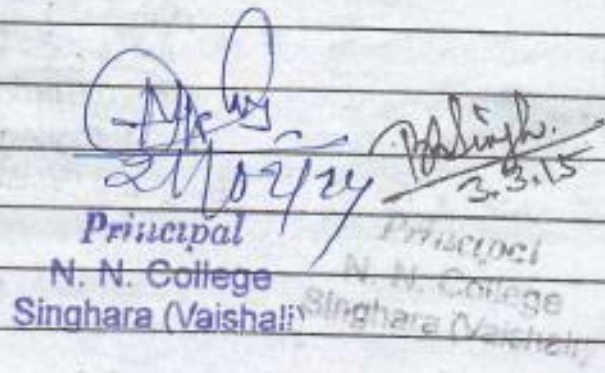 21/02/24
Principal
N. N. College
Singhara (Vaishali)
BhSingh.
3.3.15
Principal
N. N. College
Singhara (Vaishali)